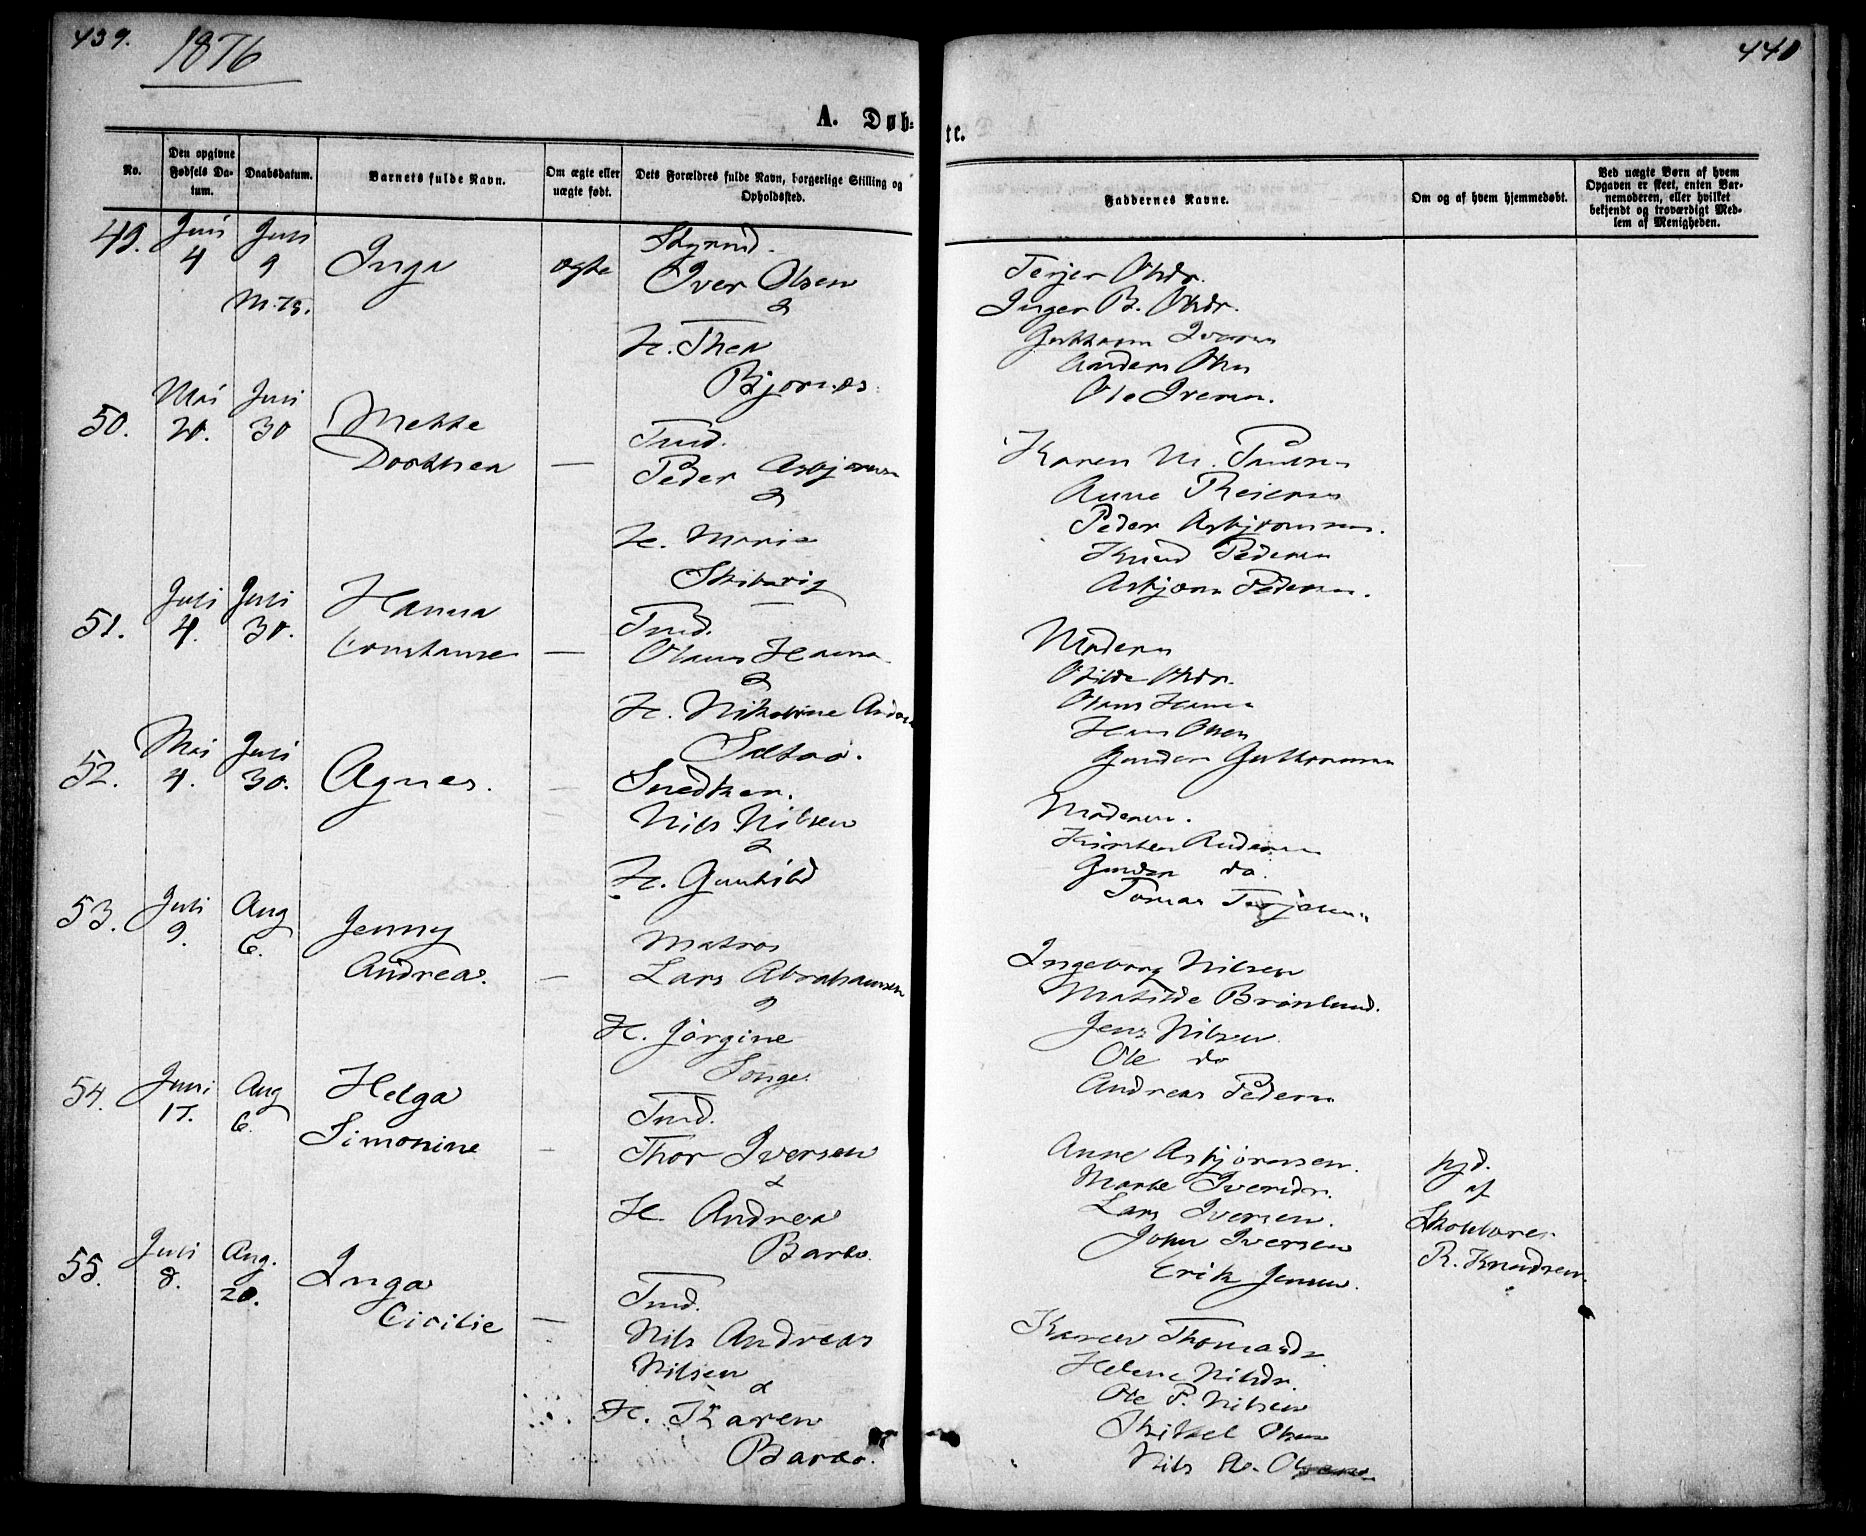 439.
1876
440
A. Døb=
te.
No.
Den opgivne Fødsels Da-tum.
Daabsdatum.
Barnets fulde Navn.
Om ægte eller uægte født.
Dets Forældres fulde Navn, borgerlige Stilling og Opholdssted.
Faddernes Navne.
Om og af hvem hjemmedøbt.
Ved uægte Børn af hvem Opgaven er skeet, enten Bar-nemoderen, eller hvilket bekjendt og troværdigt Med-lem af Menigheden.
49.
Juni 4
Juli 9
Inga
ægte
Iver Olsen
&
H. Thea
Bjornæs
Terjer Olsdr.
Inger B. Olsdr.
Anders Olsen
Ole Iversen.
50.
Mai 20.
Juli 30
Mekke
Dorthea
—
Tmd.
Peder Asbjornsen
&
H. Maria
Skibvig
Karen M.
Anne
Peder Asbjornsen.
Knud Pedersen
Asbjorn Pedersen.
51.
Juli 4.
Juli 30.
Hanna
Constanse
—
Tmd.
Olaus Hansen
&
H. Nikoline
Moderen
Olaus Hansen
Hans Olsen
Gunder Guttormsen
52.
Mai 4.
Juli 30.
Agnes.
—
Snedker.
Nils Nilsen
&
H. Gunhild
Moderen.
Kirsten Andersen
Gunder do.
Tomas Terjesen
53.
Juli 9.
Aug 6.
Jenny
Andrea.
—
Matros
Lars Abrahamsen
&
H. Jörgine
Songe.
Ingeborg Nilsen
Matilde Brönlund.
Jens Nilsen.
Ole do
Andreas Pedersen
54.
Juni 17.
Aug 6.
Helga
Simonine
—
Tmd.
Thor Iversen
&
H. Andrea
Barbo
Anne Asbjörnsen.
Marte Iversdr.
Lars Iversen.
John Iversen
Erik Jensen.
hjd.
af
Skolelærer
R. Knudsen.
55.
Juli 8.
Aug. 20.
Inga
Cicilie
—
Tmd.
Nils Andreas
Nilsen
&
H. Karen
Barbo.
Karen Thomasdr.
Helene Nilsdr.
Ole P. Nilsen
Kittel Olsen
Nils